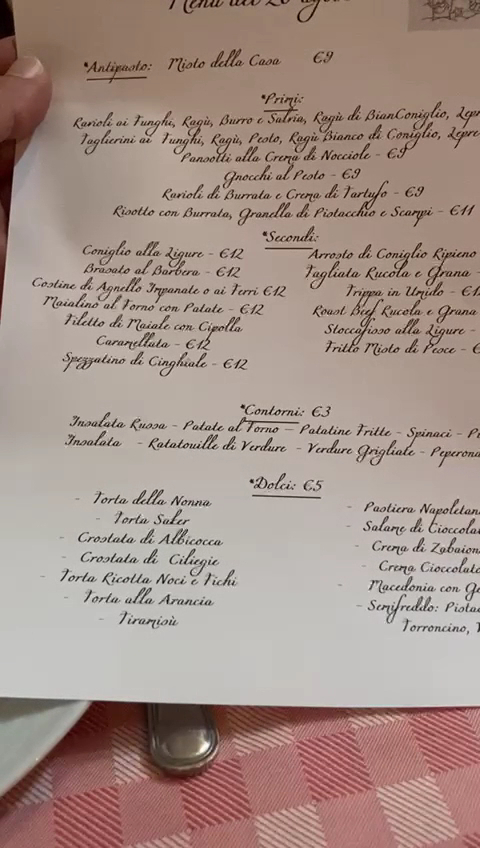 Menu del 20
*Antipasto: Misto della Casa €9
*Primi:
Ravioli ai Funghi, Ragù, Burro e Salvia, Ragù di BianConiglio, Lepr
Taglierini ai Funghi, Ragù, Pesto, Ragù Bianco di Coniglio, Lepre
Pansotti alla Crema di Nocciole - €9
Gnocchi al Pesto - €9
Ravioli di Burrata e Crema di Tartufo - €9
Risotto con Burrata, Granella di Pistacchio e Scampi - €11
*Secondi:
Coniglio alla Ligure - €12
Brasato al Barbera - €12
Costine di Agnello Impanate o ai Ferri €12
Maialino al Forno con Patate - €12
Filetto di Maiale con Cipolla
Caramellata - €12
Spezzatino di Cinghiale - €12
Arrosto di Coniglio Ripieno
Tagliata Rucola e Grana -
Trippa in Umido - €1
Roast Beef Rucola e Grana
Stoccafisso alla Ligure -
Fritto Misto di Pesce - €
*Contorni: €3
Insalata Russa - Patate al Forno - Patatine Fritte - Spinaci - P
Insalata - Ratatouille di Verdure - Verdure Grigliate - Peperona
*Dolci: €5
- Torta della Nonna
- Torta Saker
- Crostata di Albicocca
- Crostata di Ciliegie
- Torta Ricotta Noci e Fichi
- Torta alla Arancia
- Tiramisù
- Pastiera Napoletan
- Salame di Cioccola
- Crema di Zabaion
- Crema Cioccolat
- Macedonia con Ge
- Semifreddo: Pista
Torroncino,